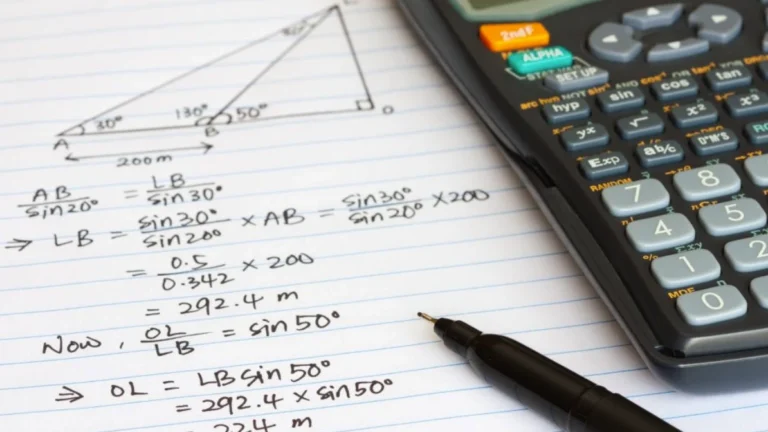 L
20°
30°
130°
50°
A
B
O
200m
AB/sin20° = LB/sin30°
⇒ LB = sin30°/sin20° × AB = sin30°/sin20° ×200
= 0.5/0.342 × 200
= 292.4 m
Now, OL/LB = sin 50°
⇒ OL = LB sin 50°
= 292.4 × sin50°
22.4 m
2ndF
ALPHA
STAT VAR
SET UP
arc hyp NOT sin⁻¹ AND cos⁻¹ OR tan⁻¹
hyp sin cos tan
yˣ √ x² x³
Exp ab/c D°M'S
RANDOM
7 8
4 5
1 2
0
MDF